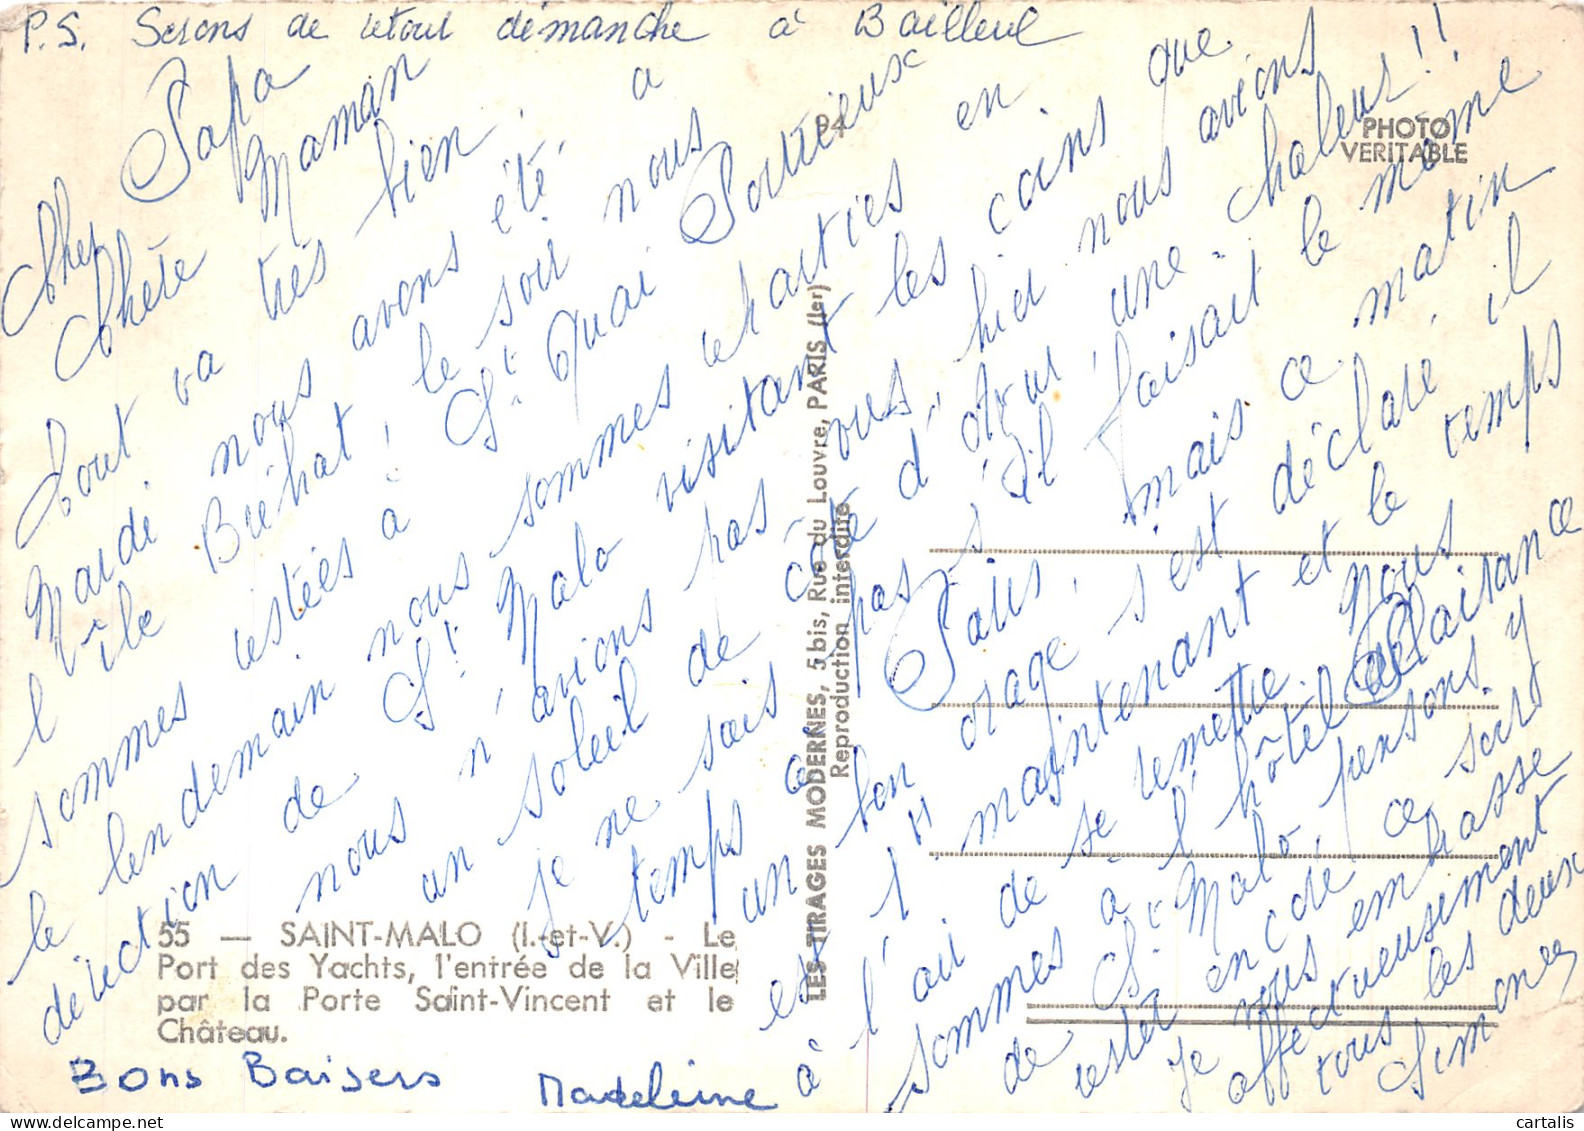 P.S. Serons de retour démanche à Bailleul
Cher Papa
Chère Maman
Tout va très bien.
Mardi nous avons été, à
l'île Bréhat, le soir nous
sommes restées à St Quai Portrieux
le lendemain nous sommes reparties en
direction de St Malo visitant les coins que
nous n'avions pas vus, hier nous avions
un soleil de "côte d'Azur", une chaleur!!
Je ne sais pas s'il faisait le même
temps à Paris, mais ce matin
un bon orage s'est déclaré, il
est 1H maintenant et le temps
à l'air de se remettre. Nous
sommes à l'hôtel de Plaisance
de St Malo, pensons y
rester encore ce soir
Je vous embrasse
affectueusement
tous les deux
Simone
Bons Baisers Madeleine
94
PHOTO
VERITABLE
LES TIRAGES MODERNES, 5 bis, Rue du Louvre, PARIS (Ier)
Reproduction interdite
55 — SAINT-MALO (I.-et-V.) - Le
Port des Yachts, l'entrée de la Ville
par la Porte Saint-Vincent et le
Château.
cartalis